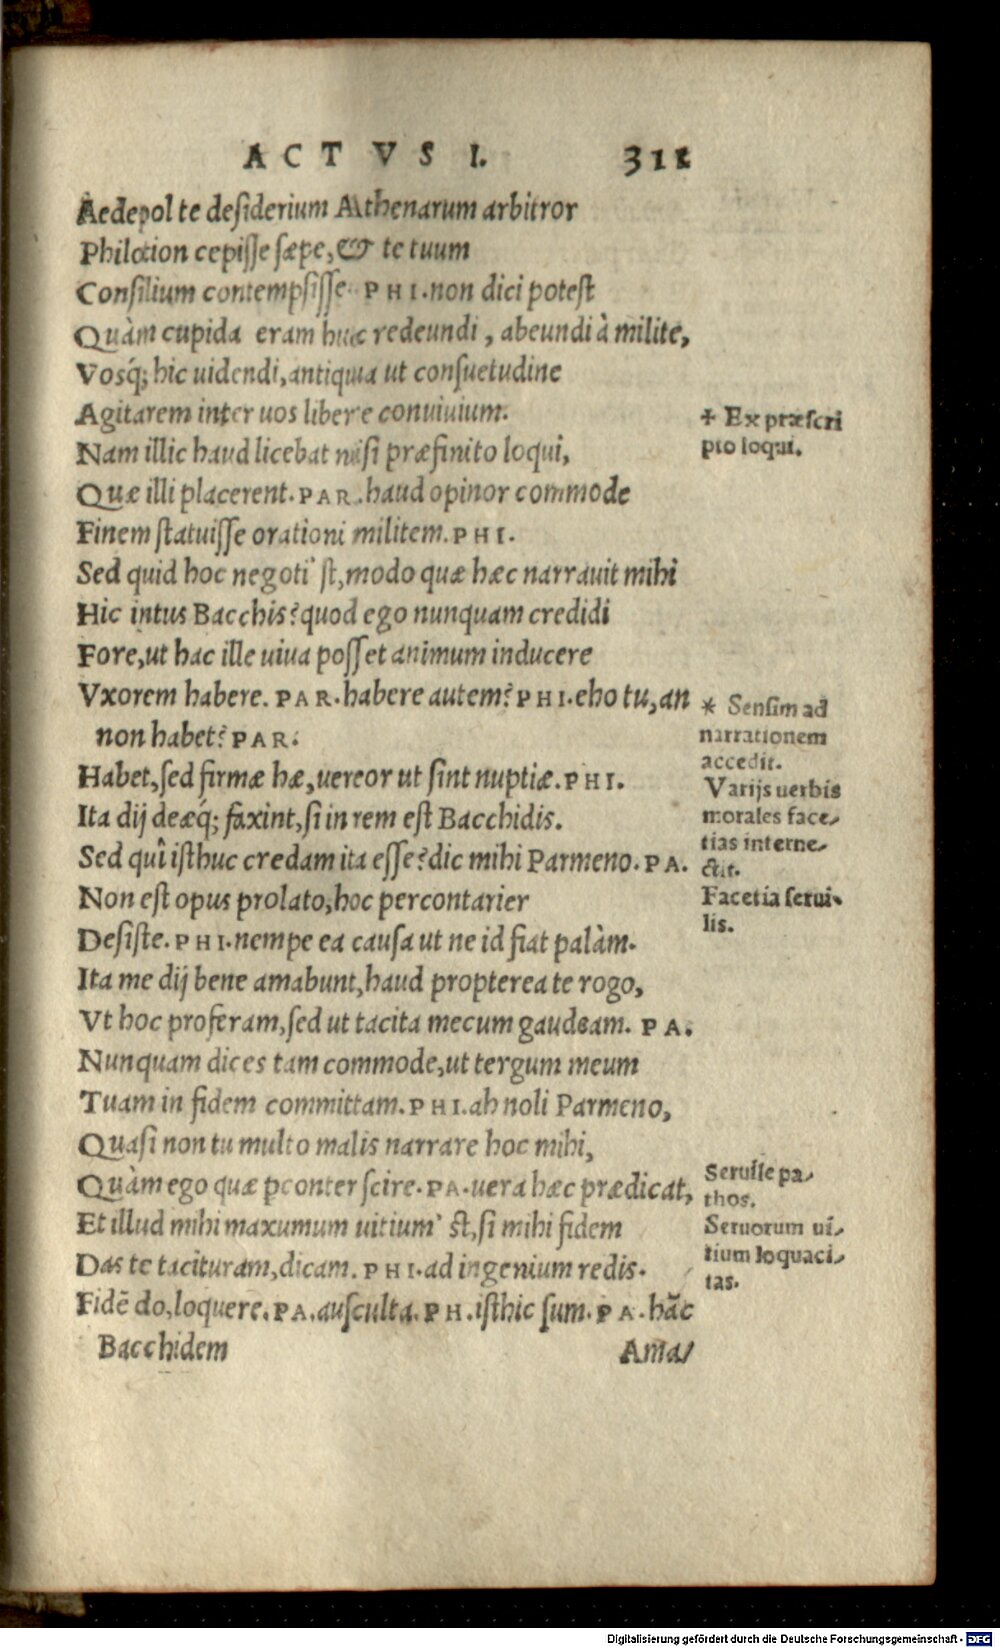 ACTVS I. 311
Aedepol te desiderium Athenarum arbitror
Philotion cepisse sæpe, & te tuum
Consilium contempsisse. PHI. non dici potest
Quàm cupida eram huc redeundi, abeundi à milite,
Vosq́; hic uidendi, antiqua ut consuetudine
Agitarem inter uos libere conuiuium.
Nam illic haud licebat nisi præfinito loqui,
Quæ illi placerent. PAR. haud opinor commode
Finem statuisse orationi militem. PHI.
Sed quid hoc negoti' st, modo quæ hæc narrauit mihi
Hic intus Bacchis? quod ego nunquam credidi
Fore, ut hac ille uiua posset animum inducere
Vxorem habere. PAR. habere autem? PHI. eho tu, an
non habet? PAR.
Habet, sed firmæ hæ, uereor ut sint nuptiæ. PHI.
Ita dij deæq́; faxint, si in rem est Bacchidis.
Sed quî isthuc credam ita esse? dic mihi Parmeno. PA.
Non est opus prolato, hoc percontarier
Desiste. PHI. nempe ea causa ut ne id fiat palàm.
Ita me dij bene amabunt, haud propterea te rogo,
Vt hoc proferam, sed ut tacita mecum gaudeam. PA.
Nunquam dices tam commode, ut tergum meum
Tuam in fidem committam. PHI. ah noli Parmeno,
Quasi non tu multo malis narrare hoc mihi,
Quàm ego quæ pconter scire. PA. uera hæc prædicat,
Et illud mihi maxumum uitium' st, si mihi fidem
Das te tacituram, dicam. PHI. ad ingenium redis.
Fidẽ do, loquere. PA. ausculta. PH. isthic sum. PA. hãc
Bacchidem Ama/
+ Ex præscri
pto loqui.
* Sensim ad
narrationem
accedit.
Varijs uerbis
morales face/
tias interne/
ctit.
Facetia serui/
lis.
Seruile pa/
thos.
Seruorum ui/
tium loquaci/
tas.
Digitalisierung gefördert durch die Deutsche Forschungsgemeinschaft - DFG